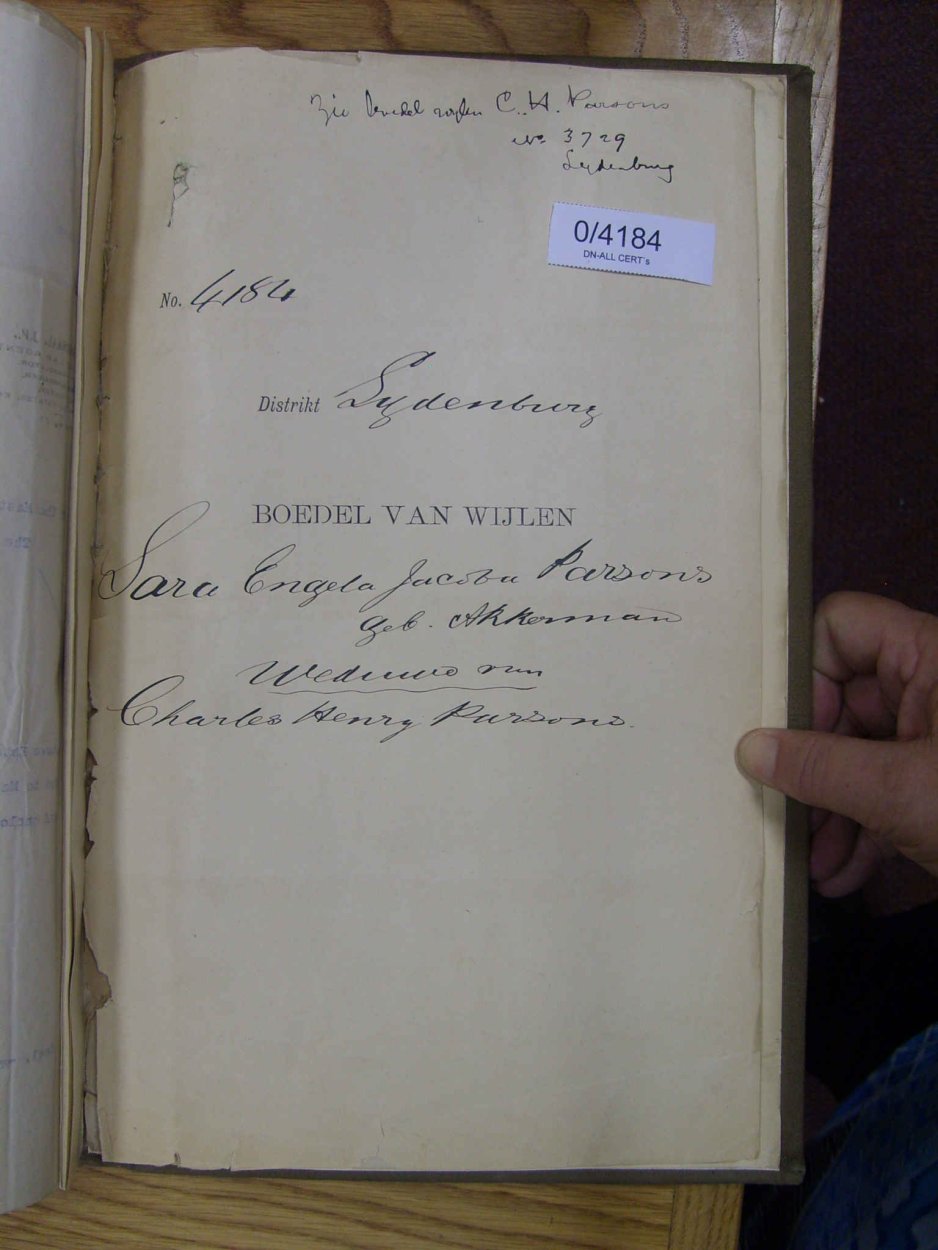 Zie boedel wijlen C. H. Parsons
No 3729
Lydenburg
0/4184
DN-ALL CERT's
No. 4184
Distrikt Lydenburg
BOEDEL VAN WIJLEN
Sara Engela Jacoba Parsons
geb. Akkerman
Weduwe van
Charles Henry Parsons.